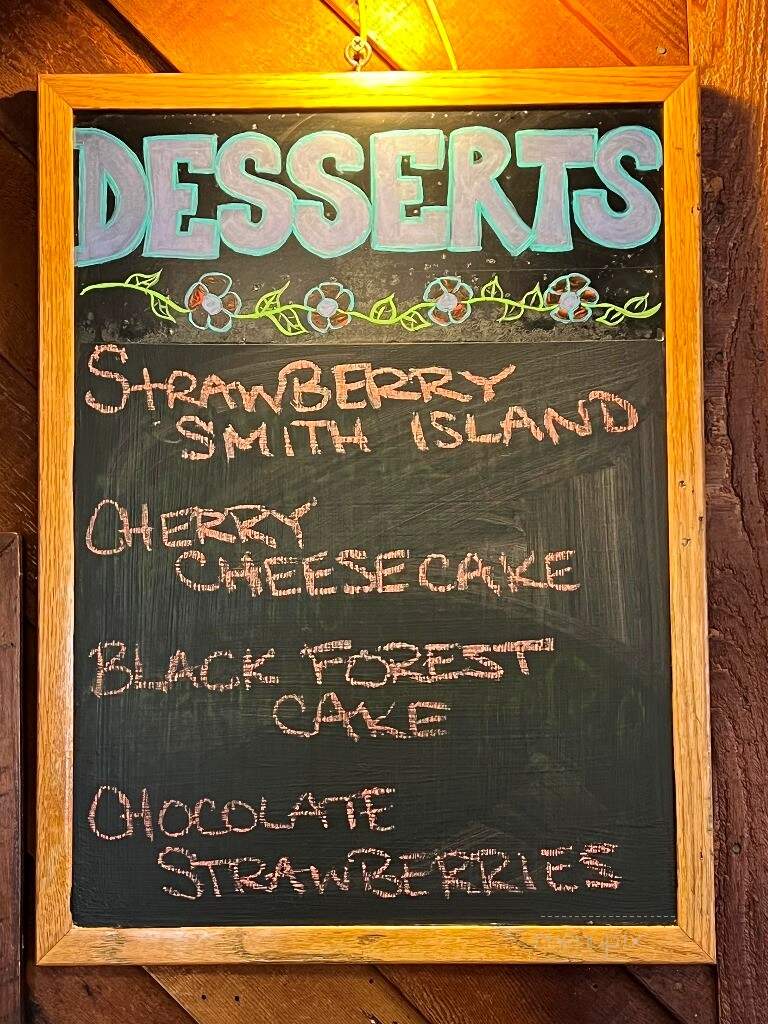 DESSERTS
STRAWBERRY
SMITH ISLAND
CHERRY
CHEESECAKE
BLACK FOREST
CAKE
CHOCOLATE
STRAWBERRIES